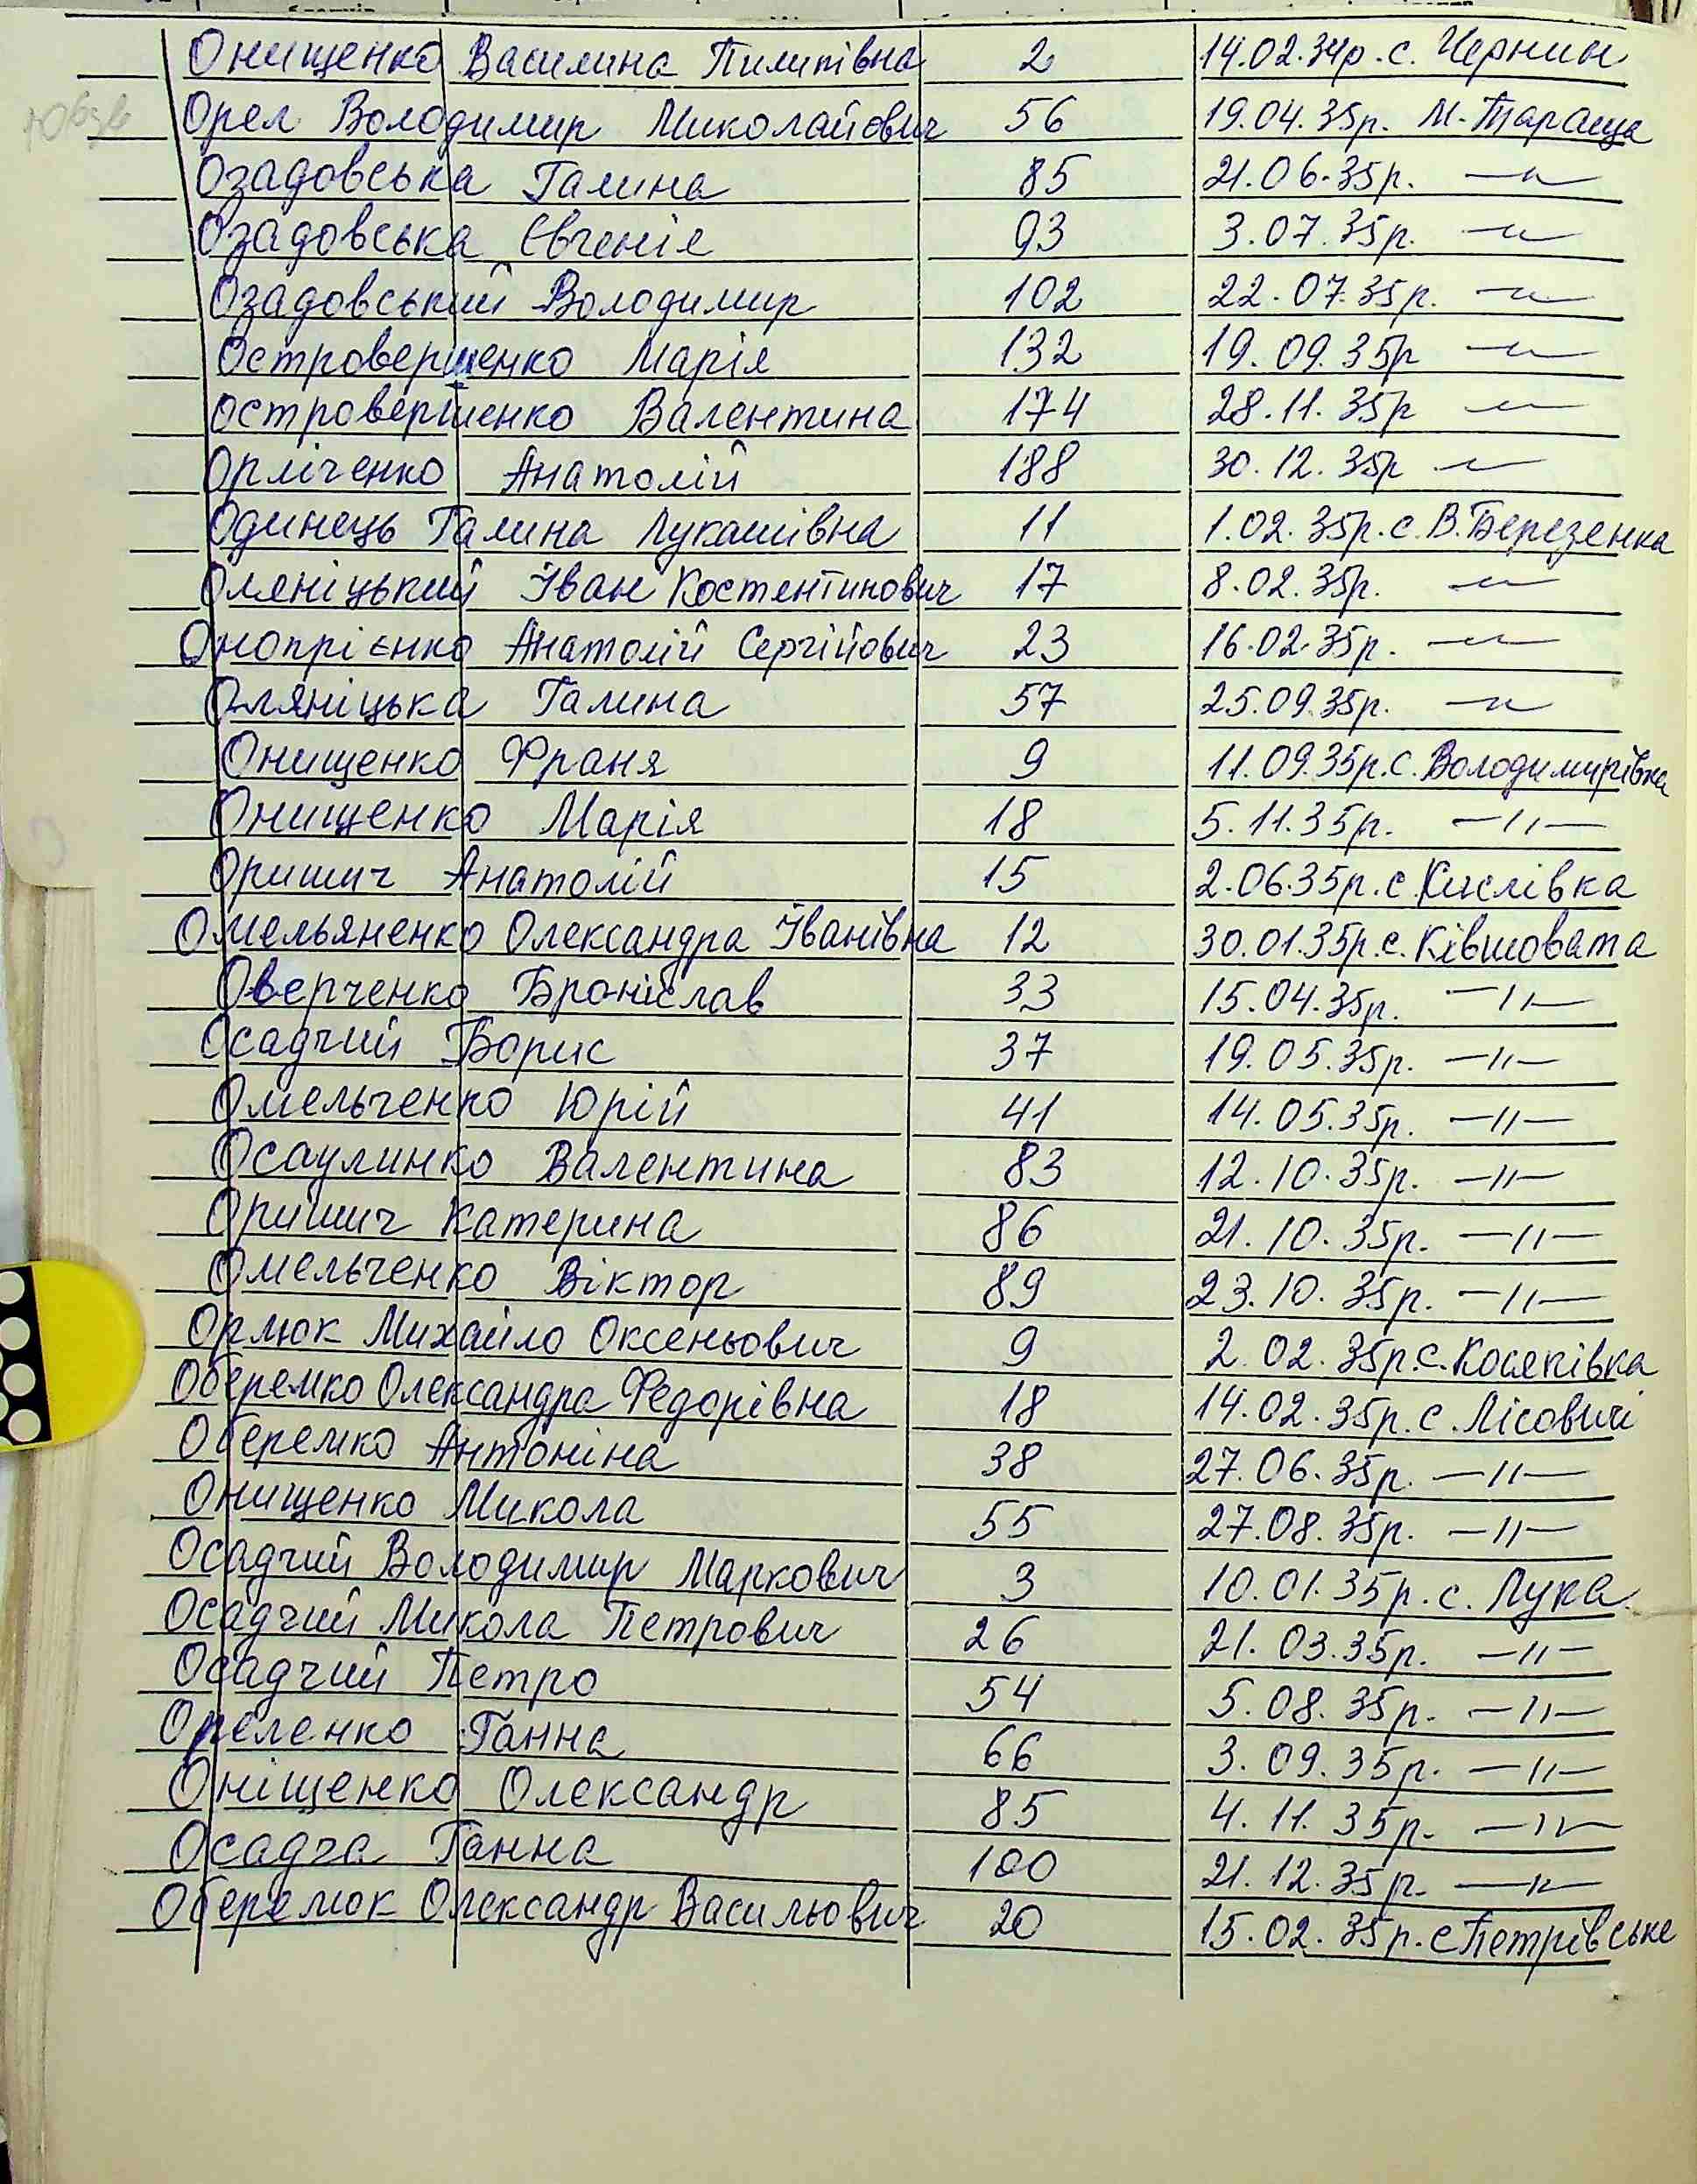 Онищенко Василина Пилипівна 2 14.02.34р. с. Чернин
Орел Володимир Миколайович 56 19.04.35р. м. Тараща
Озадовська Галина 85 21.06.35р. —"—
Озадовська Євгенія 93 3.07.35р. —"—
Озадовський Володимир 102 22.07.35р. —"—
Островершенко Марія 132 19.09.35р —"—
Островершенко Валентина 174 28.11.35р —"—
Орліченко Анатолій 188 30.12.35р —"—
Одинець Галина Лукашівна 11 1.02.35р. с. В. Березенка
Оляніцький Іван Костентинович 17 8.02.35р. —"—
Онопрієнко Анатолій Сергійович 23 16.02.35р. —"—
Оляніцька Галина 57 25.09.35р. —"—
Онищенко Франя 9 11.09.35р. с. Володимирівка
Онищенко Марія 18 5.11.35р. —"—
Оришич Анатолій 15 2.06.35р. с Кислівка
Омельяненко Олександра Іванівна 12 30.01.35р. с. Ківшовата
Оверченко Броніслав 33 15.04.35р. —"—
Осадчий Борис 37 19.05.35р. —"—
Омельченко Юрій 41 14.05.35р. —"—
Осаулинко Валентина 83 12.10.35р. —"—
Оришич Катерина 86 21.10.35р. —"—
Омельченко Віктор 89 23.10.35р. —"—
Орлюк Михайло Оксеньович 9 2.02.35р. с. Косяківка
Оберемко Олександра Федорівна 18 14.02.35р. с. Лісовичі
Оберемко Антоніна 38 27.06.35р. —"—
Онищенко Микола 55 27.08.35р. —"—
Осадчий Володимир Маркович 3 10.01.35р. с. Лука
Осадчий Микола Петрович 26 21.03.35р. —"—
Осадчий Петро 54 5.08.35р. —"—
Ореленко Ганна 66 3.09.35р. —"—
Оніщенко Олександр 85 4.11.35р. —"—
Осадча Ганна 100 21.12.35р. —"—
Оберемок Олександр Васильович 20 15.02.35р. с Петрівське